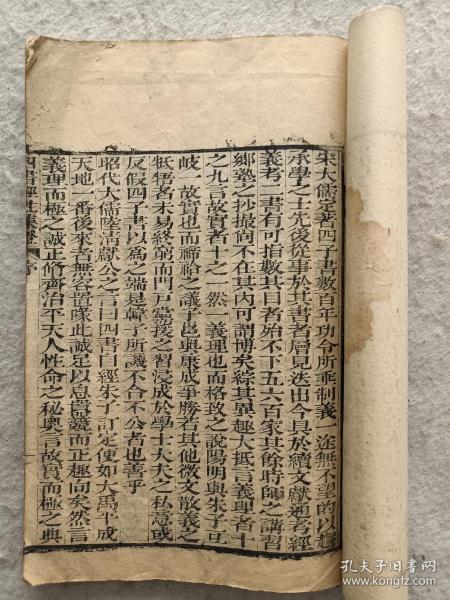 宋大儒定著四子書數百年功令所垂制義一途無不望的以趨
承學之士先後從事於其書者層見迭出今具於續文獻通考經
義考二書有可指數其目者始不下五六百家其餘時師之講習
鄉塾之抄撮尙不在其內可謂博矣綜其異趣大抵言義理者十
之九言故實者十之一然一義理也而格致之說陽明與朱子亘
岐一故實也而禘祫之議子邕與康成爭勝若其他微文散義之
牴牾者未易終窮而門戸黨援之習浸成於學士大夫之私意或
反假四子書以爲之端是韓子所譏不合不公者也善乎
昭代大儒陸淸獻公之言曰四書自經朱子訂定便如大禹平成
天地一番後來者無容置喙此誠足以息囂競而正趣向矣然言
義理而極之誠正修齊治平天人性命之秘奧言故實而極之典
四書經註集證 序
孔夫子旧书网